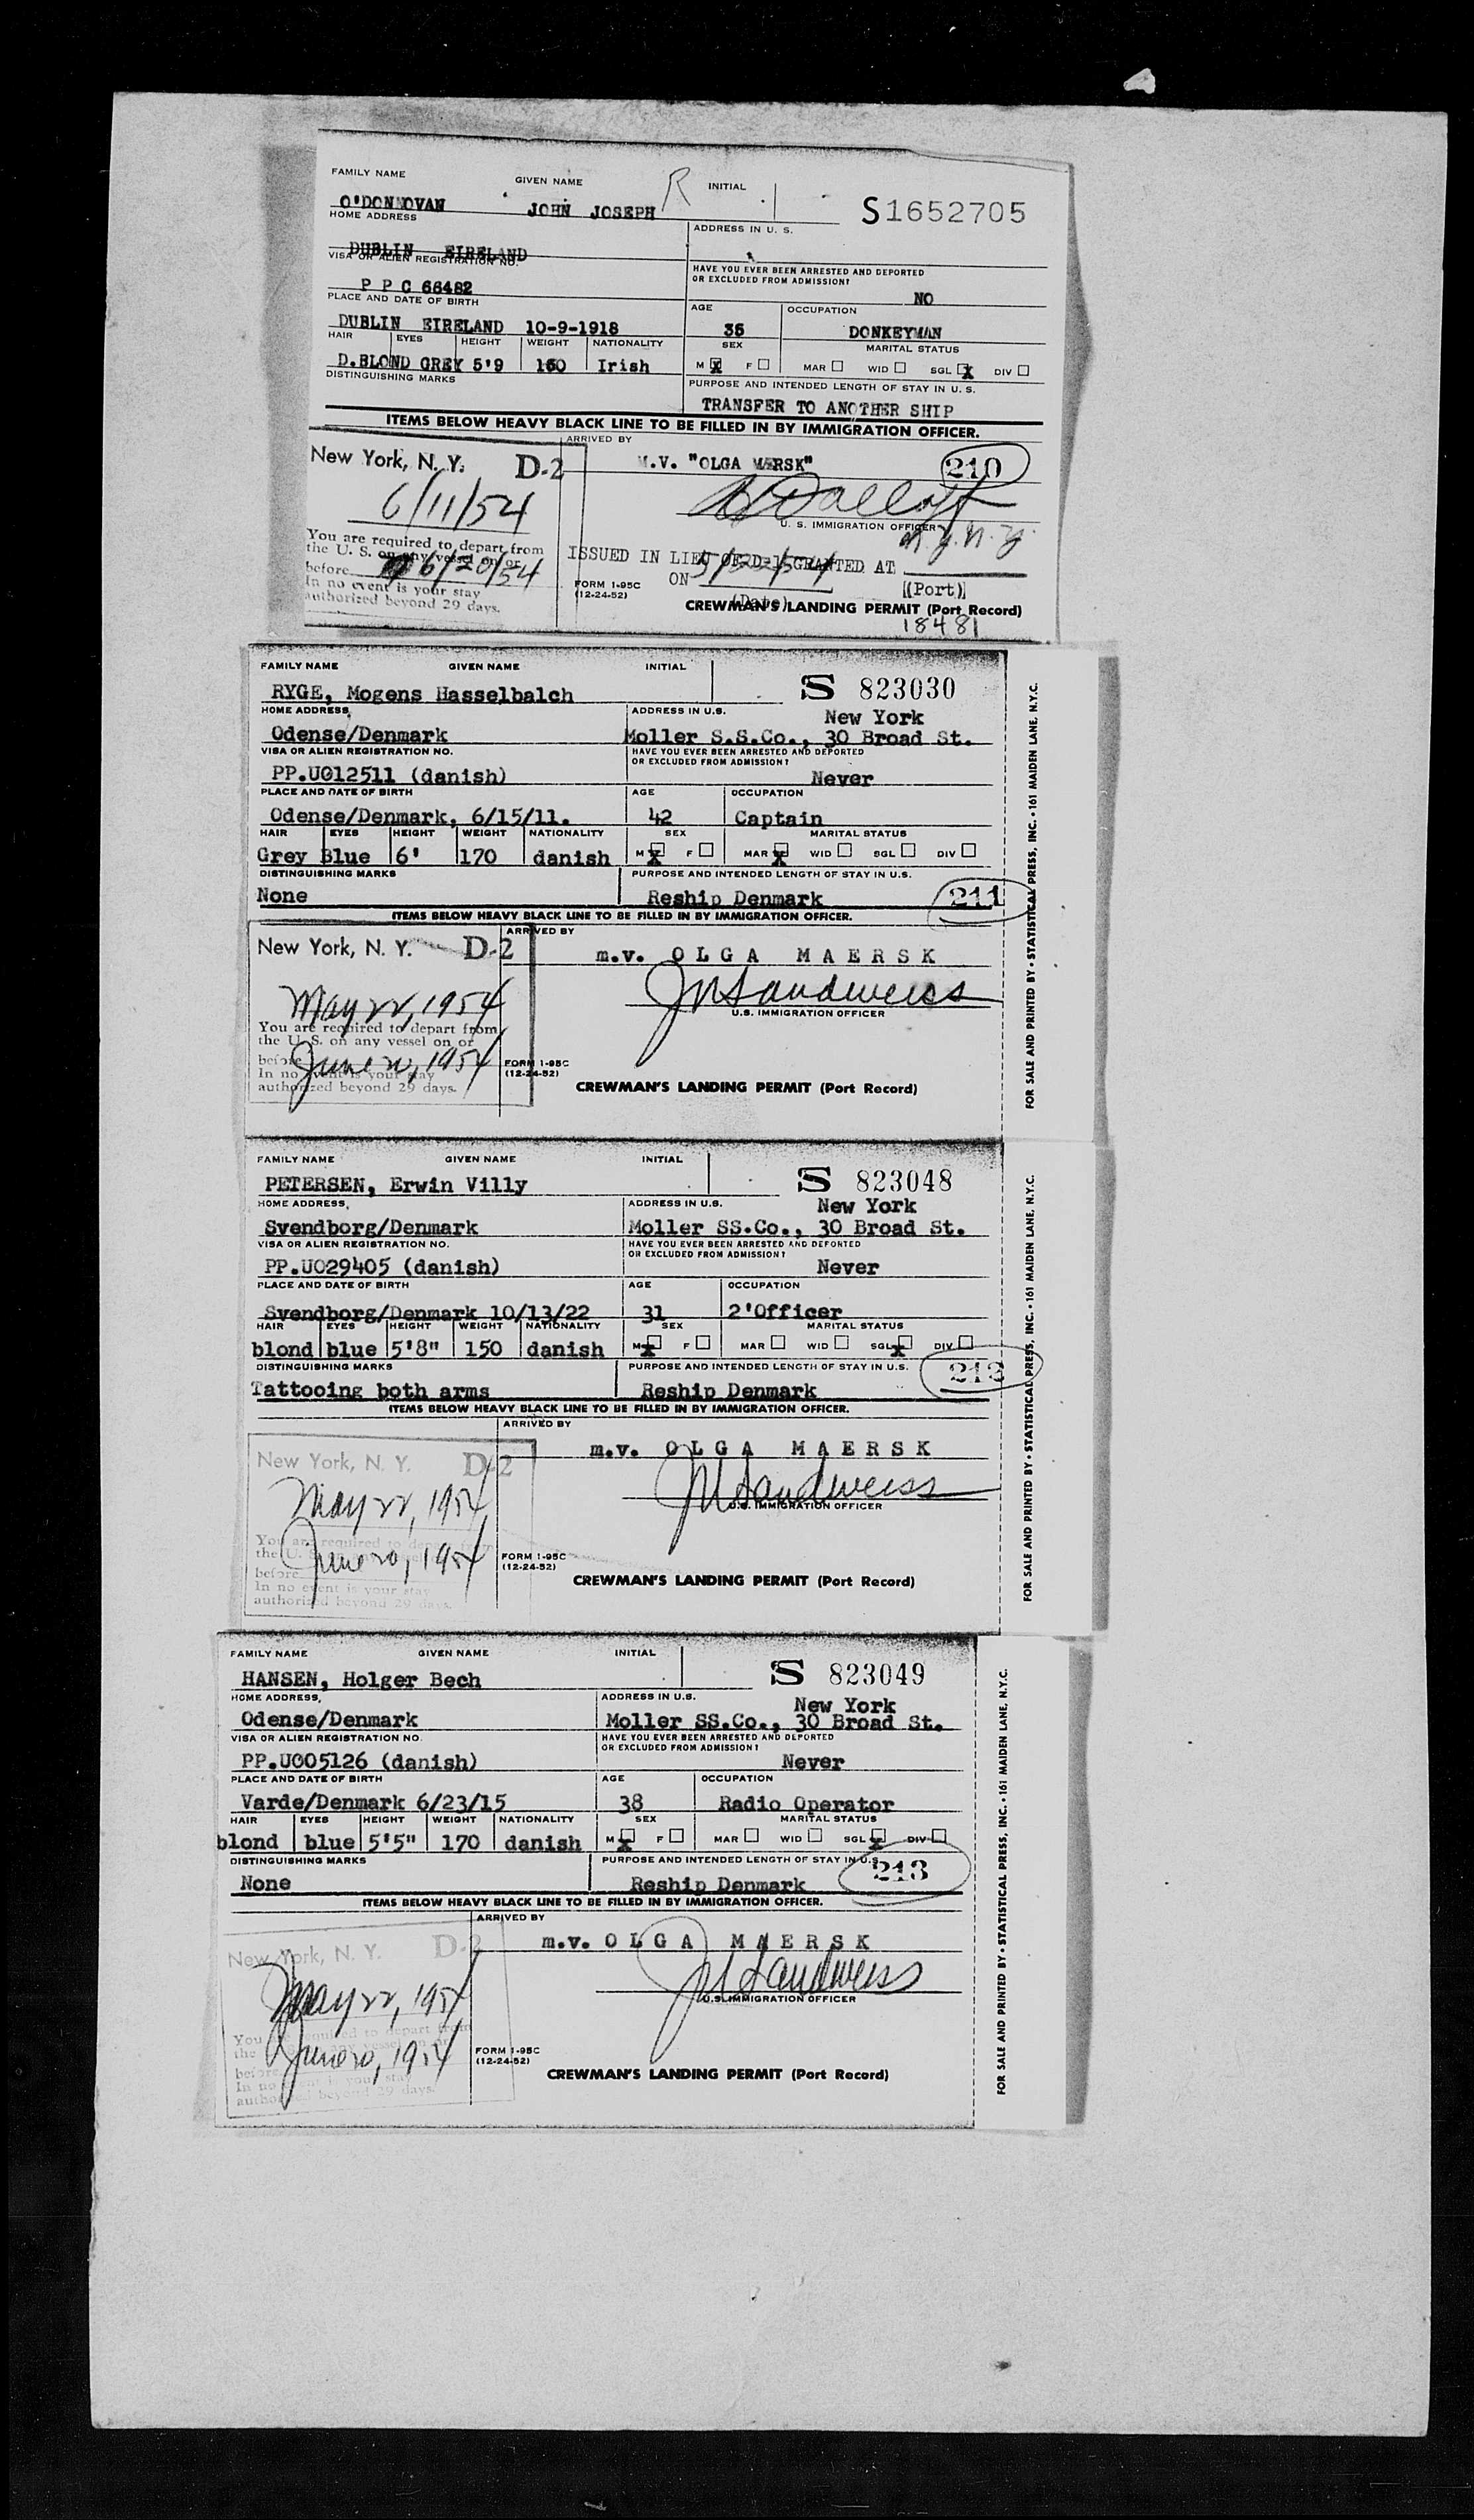 FAMILY NAME GIVEN NAME R INITIAL
O'DONNOVAN JOHN JOSEPH S1652705
HOME ADDRESS ADDRESS IN U. S.
DUBLIN EIRELAND
VISA OR ALIEN REGISTRATION NO. HAVE YOU EVER BEEN ARRESTED AND DEPORTED
OR EXCLUDED FROM ADMISSION?
P P C 66482 NO
PLACE AND DATE OF BIRTH AGE OCCUPATION
DUBLIN EIRELAND 10-9-1918 35 DONKEYMAN
HAIR EYES HEIGHT WEIGHT NATIONALITY SEX MARITAL STATUS
D.BLOND GREY 5'9 160 Irish M X F MAR WID SGL X DIV
DISTINGUISHING MARKS PURPOSE AND INTENDED LENGTH OF STAY IN U. S.
TRANSFER TO ANOTHER SHIP
ITEMS BELOW HEAVY BLACK LINE TO BE FILLED IN BY IMMIGRATION OFFICER.
ARRIVED BY
New York, N. Y. D-2 M.V. "OLGA MÆRSK" 210
6/11/54
U. S. IMMIGRATION OFFICER
N.Y.N.Y.
You are required to depart from
the U. S. on any vessel on or
before 6/20/54
In no event is your stay
authorized beyond 29 days.
ISSUED IN LIEU OF D-1 GRANTED AT
ON 5/22/54 (Port)
(Date)
FORM I-95C
(12-24-52)
CREWMAN'S LANDING PERMIT (Port Record)
18481
FAMILY NAME GIVEN NAME INITIAL
RYGE, Mogens Hasselbalch S 823030
HOME ADDRESS ADDRESS IN U.S. New York
Odense/Denmark Moller S.S.Co., 30 Broad St.
VISA OR ALIEN REGISTRATION NO. HAVE YOU EVER BEEN ARRESTED AND DEPORTED
OR EXCLUDED FROM ADMISSION?
PP.U012511 (danish) Never
PLACE AND DATE OF BIRTH AGE OCCUPATION
Odense/Denmark, 6/15/11. 42 Captain
HAIR EYES HEIGHT WEIGHT NATIONALITY SEX MARITAL STATUS
Grey Blue 6' 170 danish M X F MAR X WID SGL DIV
DISTINGUISHING MARKS PURPOSE AND INTENDED LENGTH OF STAY IN U.S.
None Reship Denmark 211
ITEMS BELOW HEAVY BLACK LINE TO BE FILLED IN BY IMMIGRATION OFFICER.
ARRIVED BY
New York, N. Y. D-2 m.v. OLGA MAERSK
JM Sandweiss
May 22, 1954 U.S. IMMIGRATION OFFICER
You are required to depart from
the U. S. on any vessel on or
before June 20, 1954
In no event is your stay
authorized beyond 29 days.
FORM I-95C
(12-24-52)
CREWMAN'S LANDING PERMIT (Port Record)
FOR SALE AND PRINTED BY • STATISTICAL PRESS, INC. • 161 MAIDEN LANE, N.Y.C.
FAMILY NAME GIVEN NAME INITIAL
PETERSEN, Erwin Villy S 823048
HOME ADDRESS ADDRESS IN U.S. New York
Svendborg/Denmark Moller SS.Co., 30 Broad St.
VISA OR ALIEN REGISTRATION NO. HAVE YOU EVER BEEN ARRESTED AND DEPORTED
OR EXCLUDED FROM ADMISSION?
PP.U029405 (danish) Never
PLACE AND DATE OF BIRTH AGE OCCUPATION
Svendborg/Denmark 10/13/22 31 2'Officer
HAIR EYES HEIGHT WEIGHT NATIONALITY SEX MARITAL STATUS
blond blue 5'8" 150 danish M X F MAR WID SGL X DIV
DISTINGUISHING MARKS PURPOSE AND INTENDED LENGTH OF STAY IN U.S. 212
Tattooing both arms Reship Denmark
ITEMS BELOW HEAVY BLACK LINE TO BE FILLED IN BY IMMIGRATION OFFICER.
ARRIVED BY
New York, N. Y. D-2 m.v. OLGA MAERSK
JM Sandweiss
May 22, 1954 U.S. IMMIGRATION OFFICER
You are required to depart from
the U.
before June 20, 1954
In no event is your stay
authorized beyond 29 days.
FORM I-95C
(12-24-52)
CREWMAN'S LANDING PERMIT (Port Record)
FOR SALE AND PRINTED BY • STATISTICAL PRESS, INC. • 161 MAIDEN LANE, N.Y.C.
FAMILY NAME GIVEN NAME INITIAL
HANSEN, Holger Bech S 823049
HOME ADDRESS ADDRESS IN U.S. New York
Odense/Denmark Moller SS.Co., 30 Broad St.
VISA OR ALIEN REGISTRATION NO. HAVE YOU EVER BEEN ARRESTED AND DEPORTED
OR EXCLUDED FROM ADMISSION?
PP.U005126 (danish) Never
PLACE AND DATE OF BIRTH AGE OCCUPATION
Varde/Denmark 6/23/15 38 Radio Operator
HAIR EYES HEIGHT WEIGHT NATIONALITY SEX MARITAL STATUS
blond blue 5'5" 170 danish M X F MAR WID SGL X DIV
DISTINGUISHING MARKS PURPOSE AND INTENDED LENGTH OF STAY IN U.S. 213
None Reship Denmark
ITEMS BELOW HEAVY BLACK LINE TO BE FILLED IN BY IMMIGRATION OFFICER.
ARRIVED BY
New York, N. Y. D-2 m.v. OLGA MAERSK
JM Sandweiss
May 22, 1954 U.S. IMMIGRATION OFFICER
You required to depart from
the
before June 20, 1954
In no event is your stay
authorized beyond 29 days.
FORM I-95C
(12-24-52)
CREWMAN'S LANDING PERMIT (Port Record)
FOR SALE AND PRINTED BY • STATISTICAL PRESS, INC. • 161 MAIDEN LANE, N.Y.C.